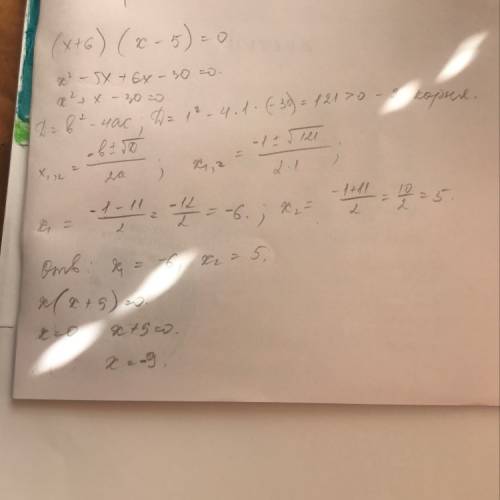 (x+6) (x-5)=0
x²-5x+6x-30=0.
x²+x-30=0
D=b²-4ac; D=1²-4·1·(-30)=121>0 - 2 корня.
x₁,₂=(-b±√D)/2a; x₁,₂=(-1±√121)/2·1;
x₁=(-1-11)/2=-12/2=-6.; x₂=(-1+11)/2=10/2=5.
Отв: x₁=-6, x₂=5.
x(x+9)=0
x=0 x+9=0.
x=-9.